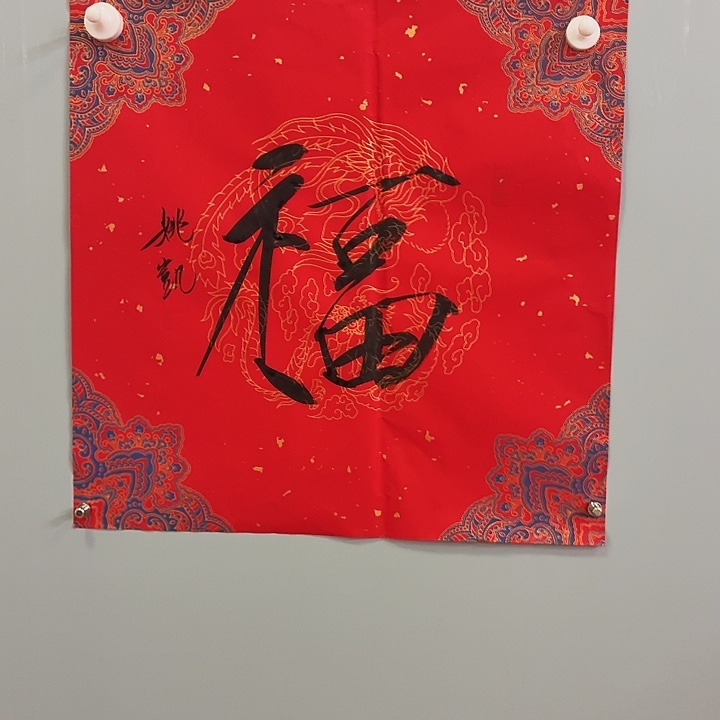 福
姚凯